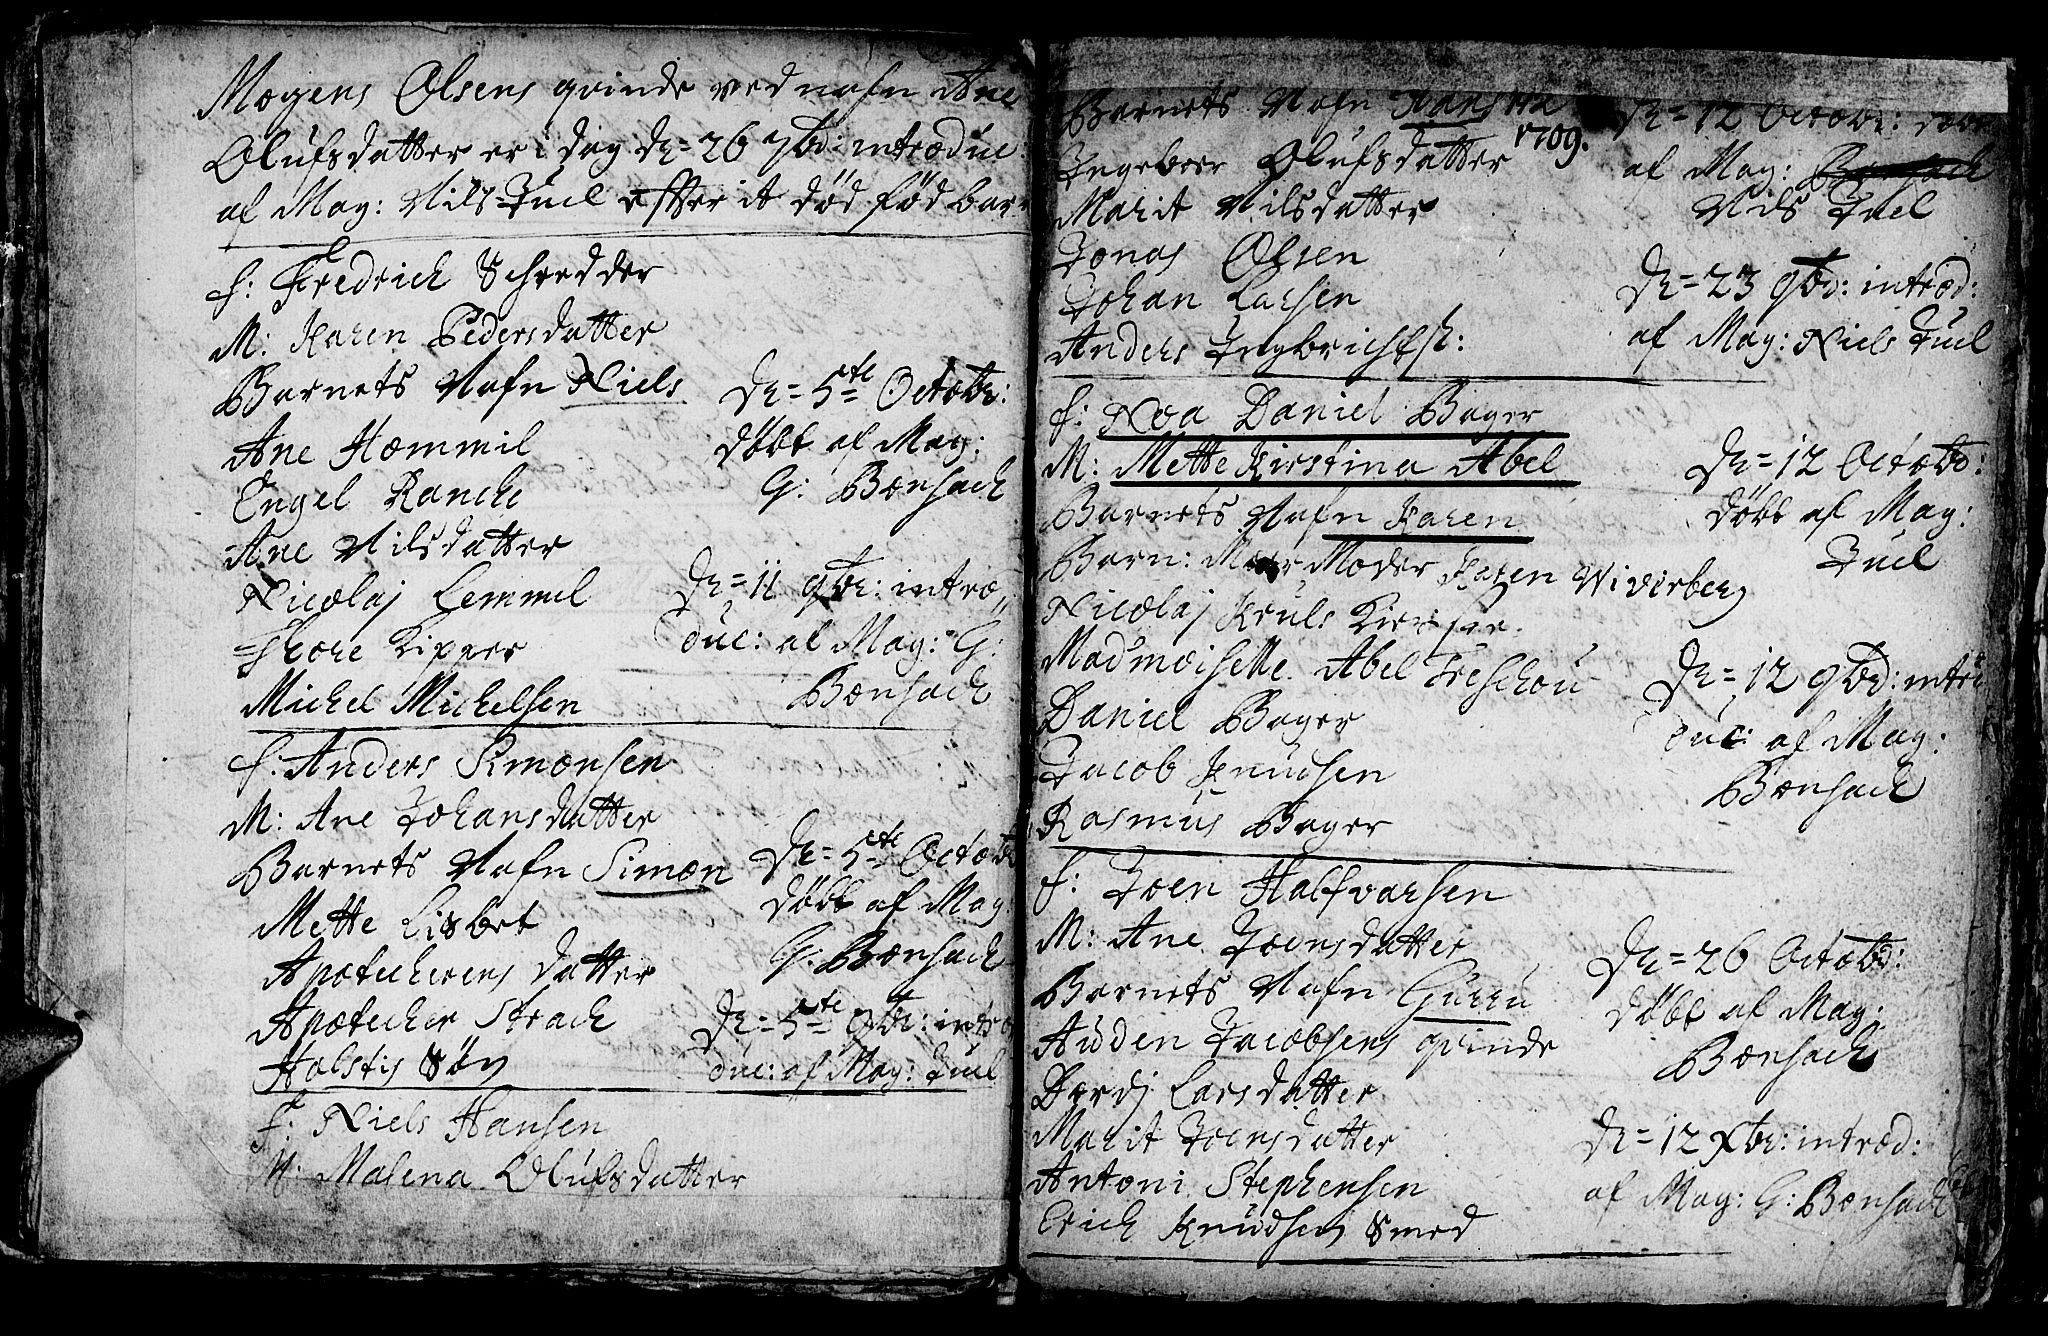 Mogens Olsens qvinde ved nafn Ane
Olufsdatter er i dag dn= 26 7br: introduc:
af Mag: Nils Juel effter it død fød barn
f: Fredrich Schredder
M: Karen Pedersdatter
Barnets Nafn Niels
Ane Hommil
Engel Ranche
Ane Nilsdatter
Nicolaj Lemmel
Thore Kipper
Michel Michelsen
Dn= 5te Octobr:
døbt af Mag:
G: Bonsach
Dn= 11 9br: intro
duc: af Mag: G:
Bonsach
f: Anders Simonsen
M: Ane Johansdatter
Barnets Nafn Simon
Mette Lisbet
Apotecherens datter
Apotecher Strach
Halstis Søn
Dn= 5te Octob
døbt af Mag
G: Bonsach
Dn= 5te 9br: intro
duc: af Mag: Juel
f: Niels Hansen
M: Malena Olufsdatter
Barnets Nafn Hans
1709.
Ingeboer Olufsdatter
Marit Nilsdatter
Jonas Olsen
Johan Larsen
Anders Ingbrichs:
Dn= 12 Octobr: døbt
af Mag: Bonsach
Nils Juel
Dn= 23 9br: introd:
af Mag: Niels Juel
f: Noa Daniel Bager
M: Mette Kirstina Abel
Barnets Nafn Karen
Barn: Moder Karen Wivirberg
Nicolaj Kruls
Madmoiselle Abel Treschou
Daniel Bager
Jacob Knudsen
Rasmus Bager
Dn= 12 Octobr:
døbt af Mag:
Juel
Dn= 12 9br: intro
duc: af Mag:
Bonsach
f: Joen Halfvarsen
M: Ane Joensdatter
Barnets Nafn Gurru
Auden Jacobsens qvinde
Dordj Larsdatter
Marit Joensdatter
Antoni Stephensen
Erich Knudsen Smed
Dn= 26 Octobr:
døbt af Mag:
Bonsach
Dn= 12 Xbr: introd:
af Mag: G: Bonsach